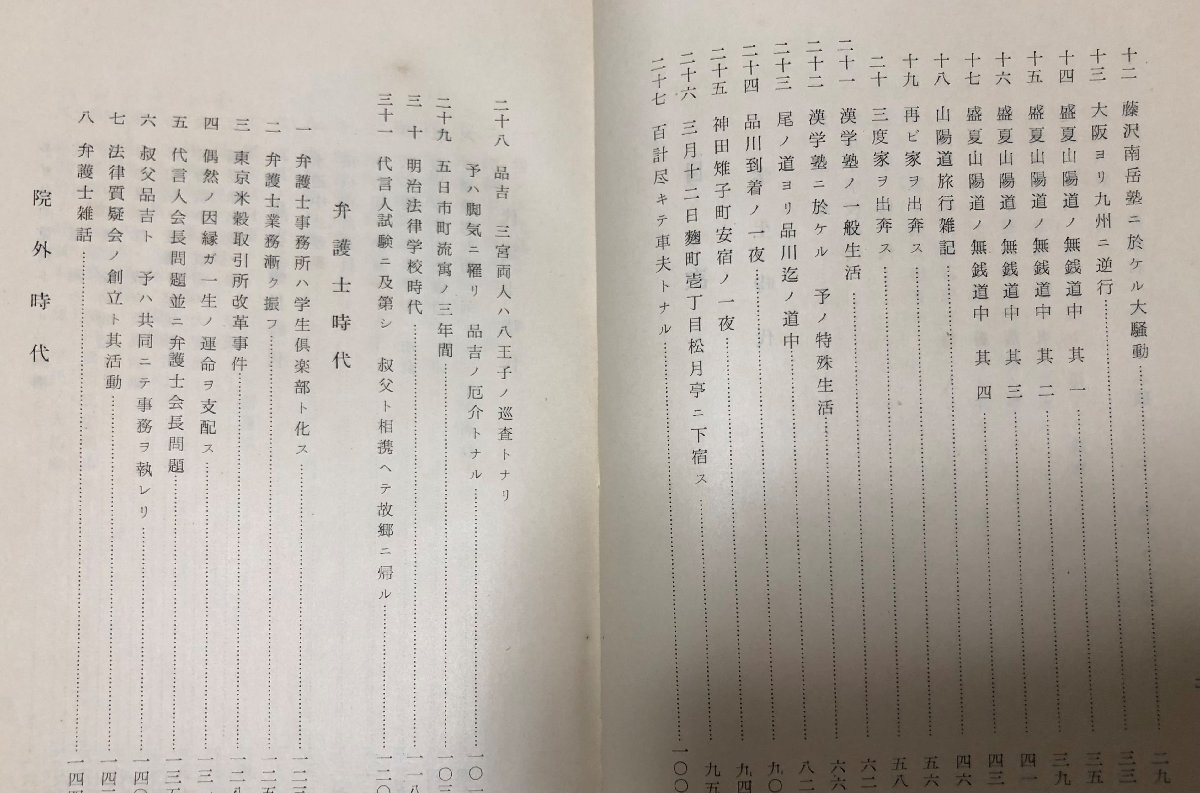 十二 藤沢南岳塾ニ於ケル大騒動 二九
十三 大阪ヨリ九州ニ逆行 三三
十四 盛夏山陽道ノ無銭道中 其一 三五
十五 盛夏山陽道ノ無銭道中 其二 三九
十六 盛夏山陽道ノ無銭道中 其三 四一
十七 盛夏山陽道ノ無銭道中 其四 四三
十八 山陽道旅行雑記 四六
十九 再ビ家ヲ出奔ス 五六
二十 三度家ヲ出奔ス 五八
二十一 漢学塾ノ一般生活 六二
二十二 漢学塾ニ於ケル 予ノ特殊生活 六六
二十三 尾ノ道ヨリ品川迄ノ道中 八二
二十四 品川到着ノ一夜 九〇
二十五 神田雉子町安宿ノ一夜 九四
二十六 三月十二日麹町壱丁目松月亭ニ下宿ス 九五
二十七 百計尽キテ車夫トナル 一〇〇
二十八 品吉 三宮両人ハ八王子ノ巡査トナリ
予ハ脚気ニ罹リ 品吉ノ厄介トナル 一〇一
二十九 五日市町流寓ノ三年間 一〇三
三十 明治法律学校時代 一一八
三十一 代言人試験ニ及第シ 叔父ト相携ヘテ故郷ニ帰ル 一二〇
弁護士時代
一 弁護士事務所ハ学生倶楽部ト化ス 一二三
二 弁護士業務漸ク振フ 一二五
三 東京米穀取引所改革事件 一二八
四 偶然ノ因縁ガ一生ノ運命ヲ支配ス 一三一
五 代言人会長問題並ニ弁護士会長問題 一三五
六 叔父品吉ト 予ハ共同ニテ事務ヲ執レリ 一四〇
七 法律質疑会ノ創立ト其活動
八 弁護士雑話 一四四
院外時代